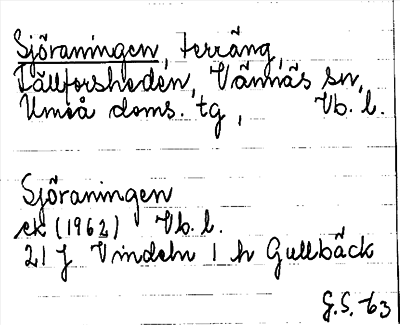 Sjöraningen, terräng,
Fällforsheden, Vännäs sn,
Umeå doms. tg, Vb. l.
Sjöraningen
ek (1962) Vb. l.
21 J Vindeln 1 h Gullbäck
G.S. 63